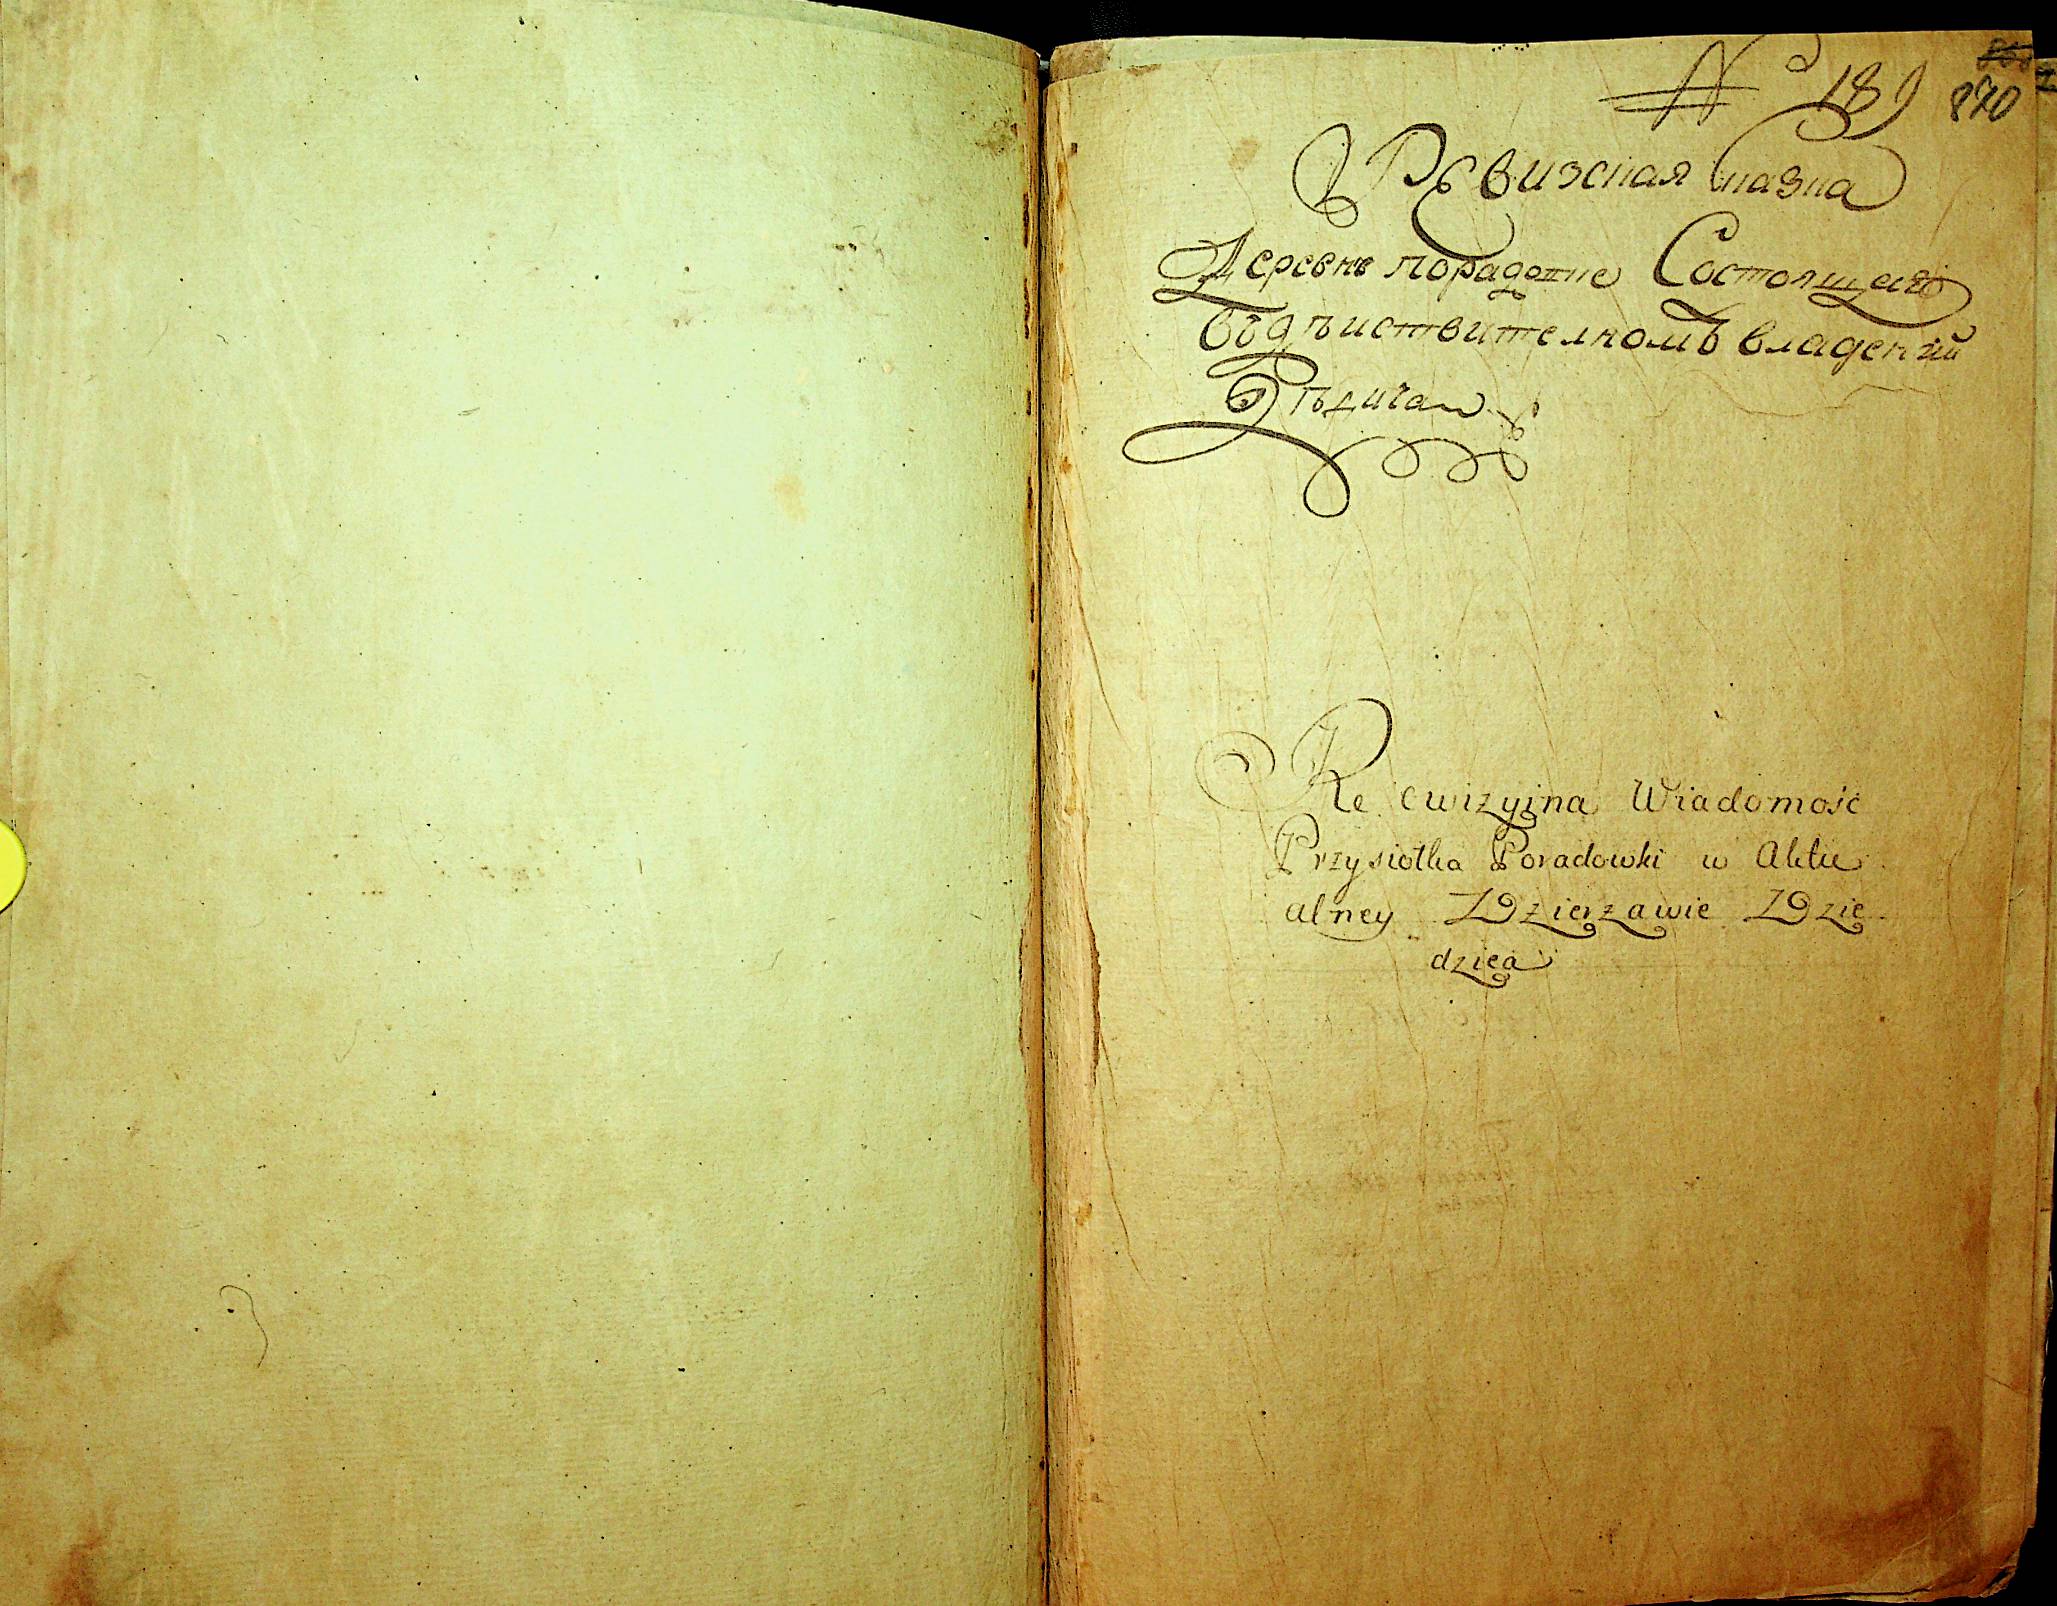 № 189
870
Ревизская сказка
Деревне порадовке Состоящея
въдѣиствителномъ владенїи
Рewizyjna Wiadomość
Przysiołka Poradowki w Aktu
alney Dzierzawie Dzie
dzica